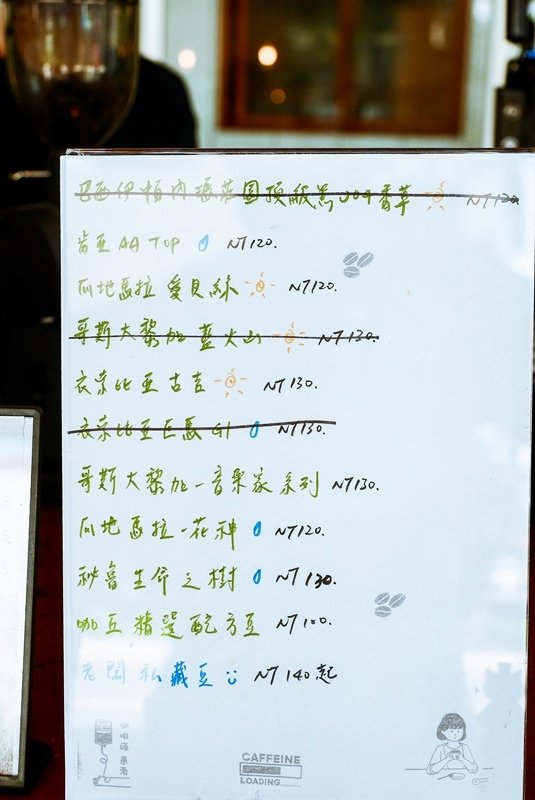 巴西伊帕內瑪莊園頂級黑J04香草 NT120
肯亞AA TOP NT120.
瓜地馬拉 愛貝絲 NT120.
哥斯大黎加 藍火山 NT130.
衣索比亞古吉 NT130.
衣索比亞巨馬G1 NT130.
哥斯大黎加-音樂家系列 NT130.
瓜地馬拉-花神 NT120.
秘魯生命之樹 NT130.
咖豆精選配方豆 NT100.
老闆私藏豆 NT140起
咖啡
CAFFEINE
LOADING.........